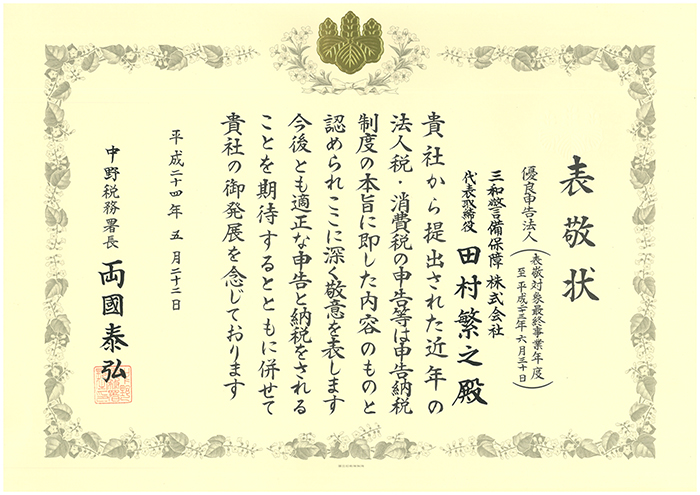 表敬状
優良申告法人（表敬対象最終事業年度 至平成二十三年六月三十日）
三和警備保障株式会社
代表取締役 田村繁之殿
貴社から提出された近年の
法人税・消費税の申告等は申告納税
制度の本旨に即した内容のものと
認められここに深く敬意を表します
今後とも適正な申告と納税をされる
ことを期待するとともに併せて
貴社の御発展を念じております
平成二十四年五月二十二日
中野税務署長 両國泰弘